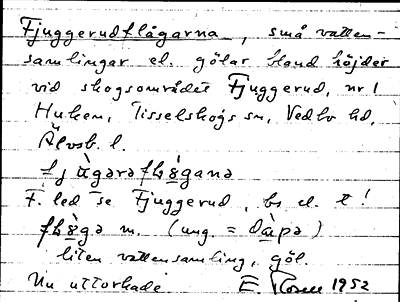 Fjuggerudflågarna, små vatten-
samlingar el. gölar bland höjder
vid skogsområdet Fjuggerud, nr 1
Huken, Tisselskogs sn, Vedbo hd,
Älvsb. l.
F. led se Fjuggerud, bs el. t!
m. (ung. =
liten vattensamling, göl.
Nu uttorkade E. Rosell 1952